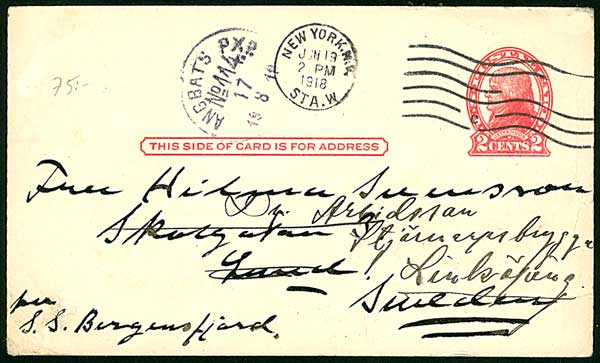 75:-
ÅNGBÅTS PXP
No 114
17
8
NEW YORK, N.Y.
JUN 19
2 PM
1918
STA. W
2 CENTS 2
THIS SIDE OF CARD IS FOR ADDRESS
Fru Hilma Svensson
Dr. Arvidsson
Skolgatan
Lund!
Linköping
Sweden
per
S.S. Bergensfjord.